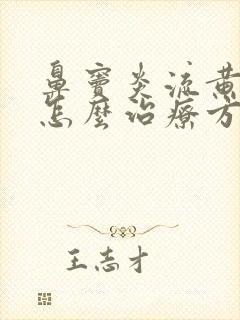 鼻窦炎流黄
怎麼治療方
王志才